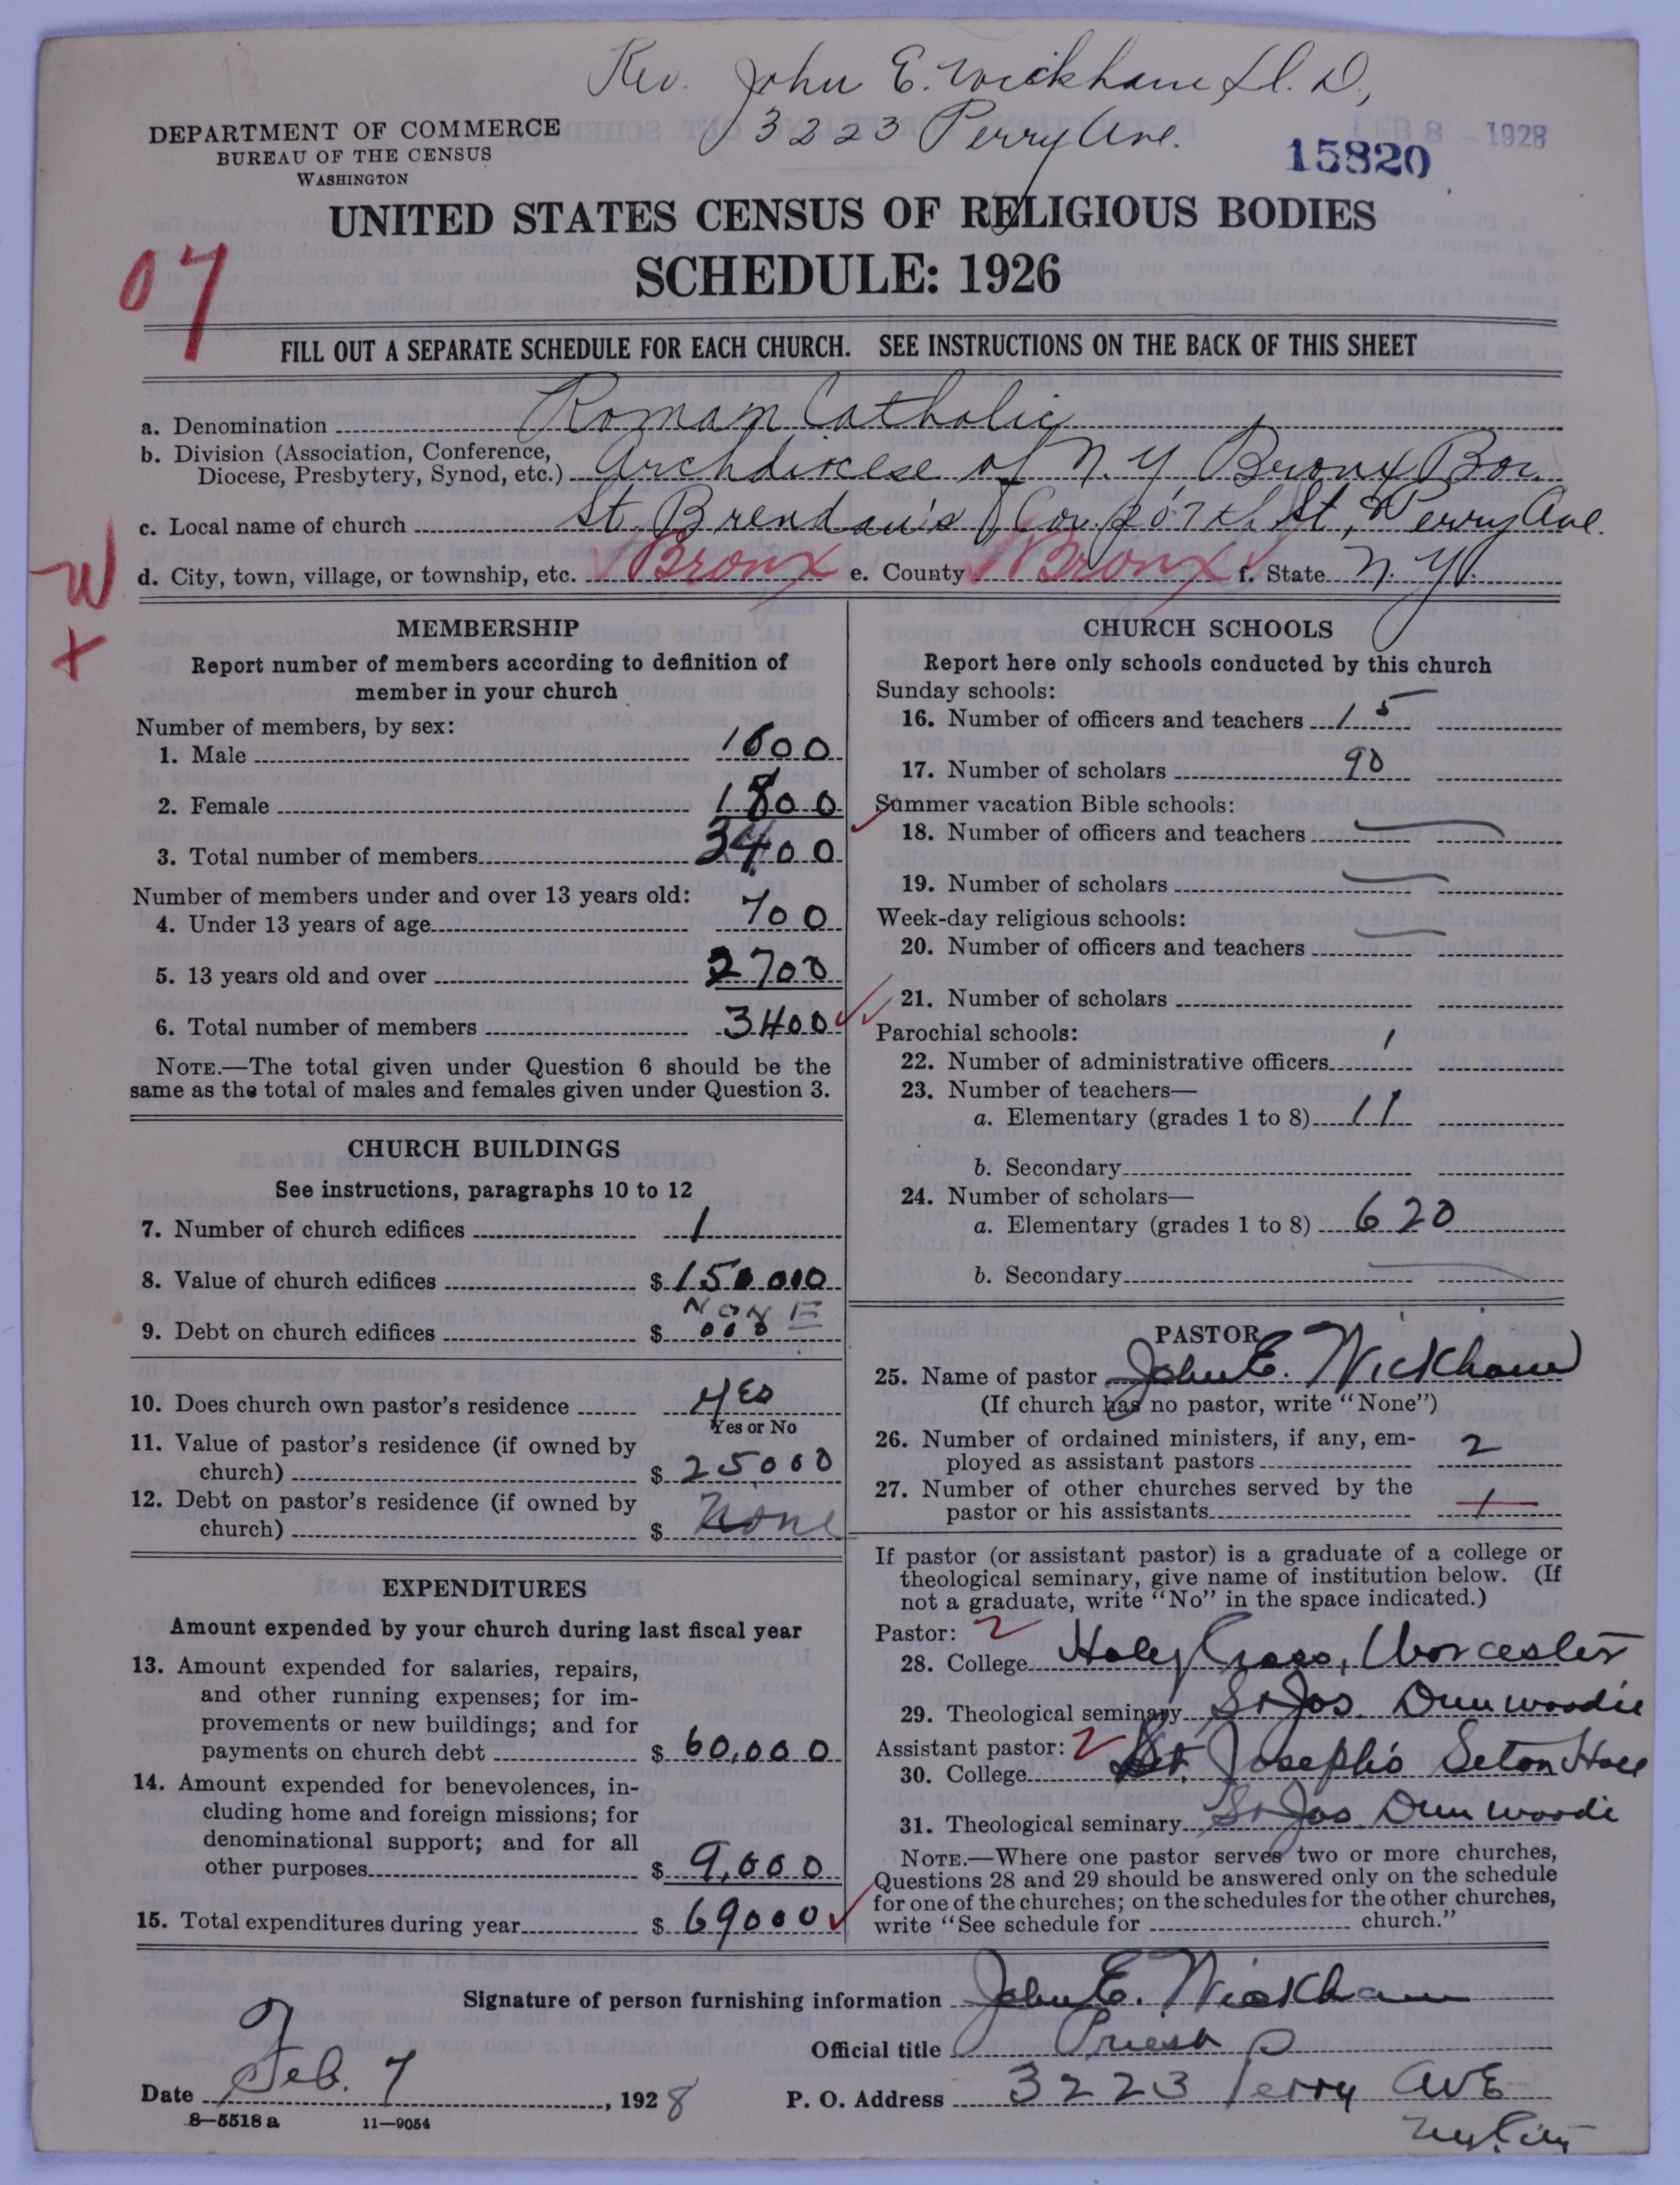 Rev. John E. Wickham LL. D.,
3223 Perry Ave.
DEPARTMENT OF COMMERCE
BUREAU OF THE CENSUS
WASHINGTON
FEB 8 - 1928
15820
UNITED STATES CENSUS OF RELIGIOUS BODIES
SCHEDULE: 1926
07
FILL OUT A SEPARATE SCHEDULE FOR EACH CHURCH. SEE INSTRUCTIONS ON THE BACK OF THIS SHEET
a. Denomination Roman Catholic
b. Division (Association, Conference,
Diocese, Presbytery, Synod, etc.) Archdiocese of N. Y Bronx Bor.
c. Local name of church St. Brendan's Cor. 207th St, & Perry Ave.
W
d. City, town, village, or township, etc. Bronx e. County Bronx f. State N. Y.
+
MEMBERSHIP
Report number of members according to definition of
member in your church
Number of members, by sex:
1. Male 1600
2. Female 1800
3. Total number of members 3400
Number of members under and over 13 years old:
4. Under 13 years of age 700
5. 13 years old and over 2700
6. Total number of members 3400
NOTE.—The total given under Question 6 should be the
same as the total of males and females given under Question 3.
CHURCH BUILDINGS
See instructions, paragraphs 10 to 12
7. Number of church edifices 1
8. Value of church edifices $ 150000
NONE
9. Debt on church edifices $ 000
10. Does church own pastor's residence Yes
Yes or No
11. Value of pastor's residence (if owned by
church) $ 25000
12. Debt on pastor's residence (if owned by
church) $ None
EXPENDITURES
Amount expended by your church during last fiscal year
13. Amount expended for salaries, repairs,
and other running expenses; for im-
provements or new buildings; and for
payments on church debt $ 60,000
14. Amount expended for benevolences, in-
cluding home and foreign missions; for
denominational support; and for all
other purposes $ 9,000
15. Total expenditures during year $ 69000
CHURCH SCHOOLS
Report here only schools conducted by this church
Sunday schools:
16. Number of officers and teachers 15
17. Number of scholars 90
Summer vacation Bible schools:
18. Number of officers and teachers
19. Number of scholars
Week-day religious schools:
20. Number of officers and teachers
21. Number of scholars
Parochial schools:
22. Number of administrative officers 1
23. Number of teachers—
a. Elementary (grades 1 to 8) 11
b. Secondary
24. Number of scholars—
a. Elementary (grades 1 to 8) 620
b. Secondary
PASTOR
25. Name of pastor John E. Wickham
(If church has no pastor, write "None")
26. Number of ordained ministers, if any, em-
ployed as assistant pastors 2
27. Number of other churches served by the
pastor or his assistants 1
If pastor (or assistant pastor) is a graduate of a college or
theological seminary, give name of institution below. (If
not a graduate, write "No" in the space indicated.)
Pastor: 2
28. College Holy Cross, Worcester
29. Theological seminary St Jos. Dunwoodie
Assistant pastor: 2
30. College St. Joseph's Seton Hall
31. Theological seminary St Jos. Dunwoodie
NOTE.—Where one pastor serves two or more churches,
Questions 28 and 29 should be answered only on the schedule
for one of the churches; on the schedules for the other churches,
write "See schedule for church."
Signature of person furnishing information John E. Wickham
Official title Priest
Date Feb. 7, 1928 P. O. Address 3223 Perry AVE
8—5518 a 11—9054
N.Y. City